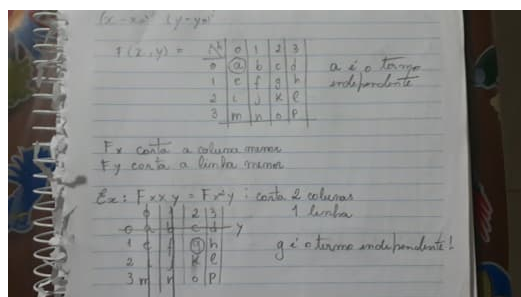 (x-x₀)ⁿ (y-y₀)ⁿ
F(x,y) =
0 1 2 3
0 a b c d
1 e f g h
2 i j k l
3 m n o p
a é o termo
independente
Fx corta a coluna menor
Fy corta a linha menor
Ex: Fxxy = Fx²y : corta 2 colunas
1 linha
0 1 2 3
0 a b c d y
1 e f g h
2 k l
3 m n o p
g é o termo independente!